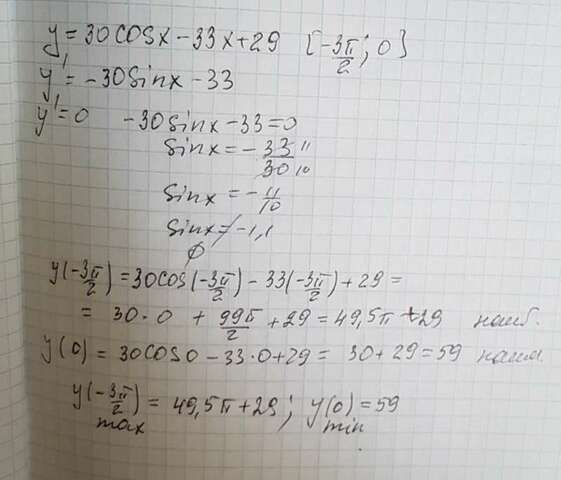 y = 30cosx - 33x + 29 [-3π/2; 0]
y' = -30sinx - 33
y' = 0 -30sinx - 33 = 0
sinx = - 33 11 / 30 10
sinx = - 11/10
sinx ≠ -1,1
∅
y(-3π/2) = 30cos(-3π/2) - 33(-3π/2) + 29 =
= 30·0 + 99π/2 + 29 = 49,5π + 29 наиб.
y(0) = 30cos0 - 33·0 + 29 = 30 + 29 = 59 наим.
y(-3π/2) = 49,5π + 29; y(0) = 59
max min